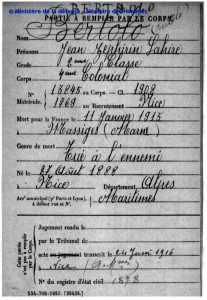 © Ministère de la défense - Mémoire des hommes
PARTIE À REMPLIR PAR LE CORPS.
Nom BERTOLO
Prénoms Jean Zéphirin Lahire
Grade 2ème Classe
Corps 4ème Colonial
N° 15245 au Corps. — Cl. 1908
Matricule. 1869 au Recrutement Nice
Mort pour la France le 11 Janvier 1915
à Massiges (Marne)
Genre de mort Tué à l'ennemi
Né le 27 Août 1888
à Nice Département Alpes
Arr municipal (pr Paris et Lyon), à défaut rue et N°. Maritimes
Cette partie n'est pas à remplir par le Corps.
Jugement rendu le
par le Tribunal de
acte ou jugement transcrit le 24 Juin 1916
à Nice (A.-Mmes)
N° du registre d'état civil 1878
534-708-1922. [26434.]